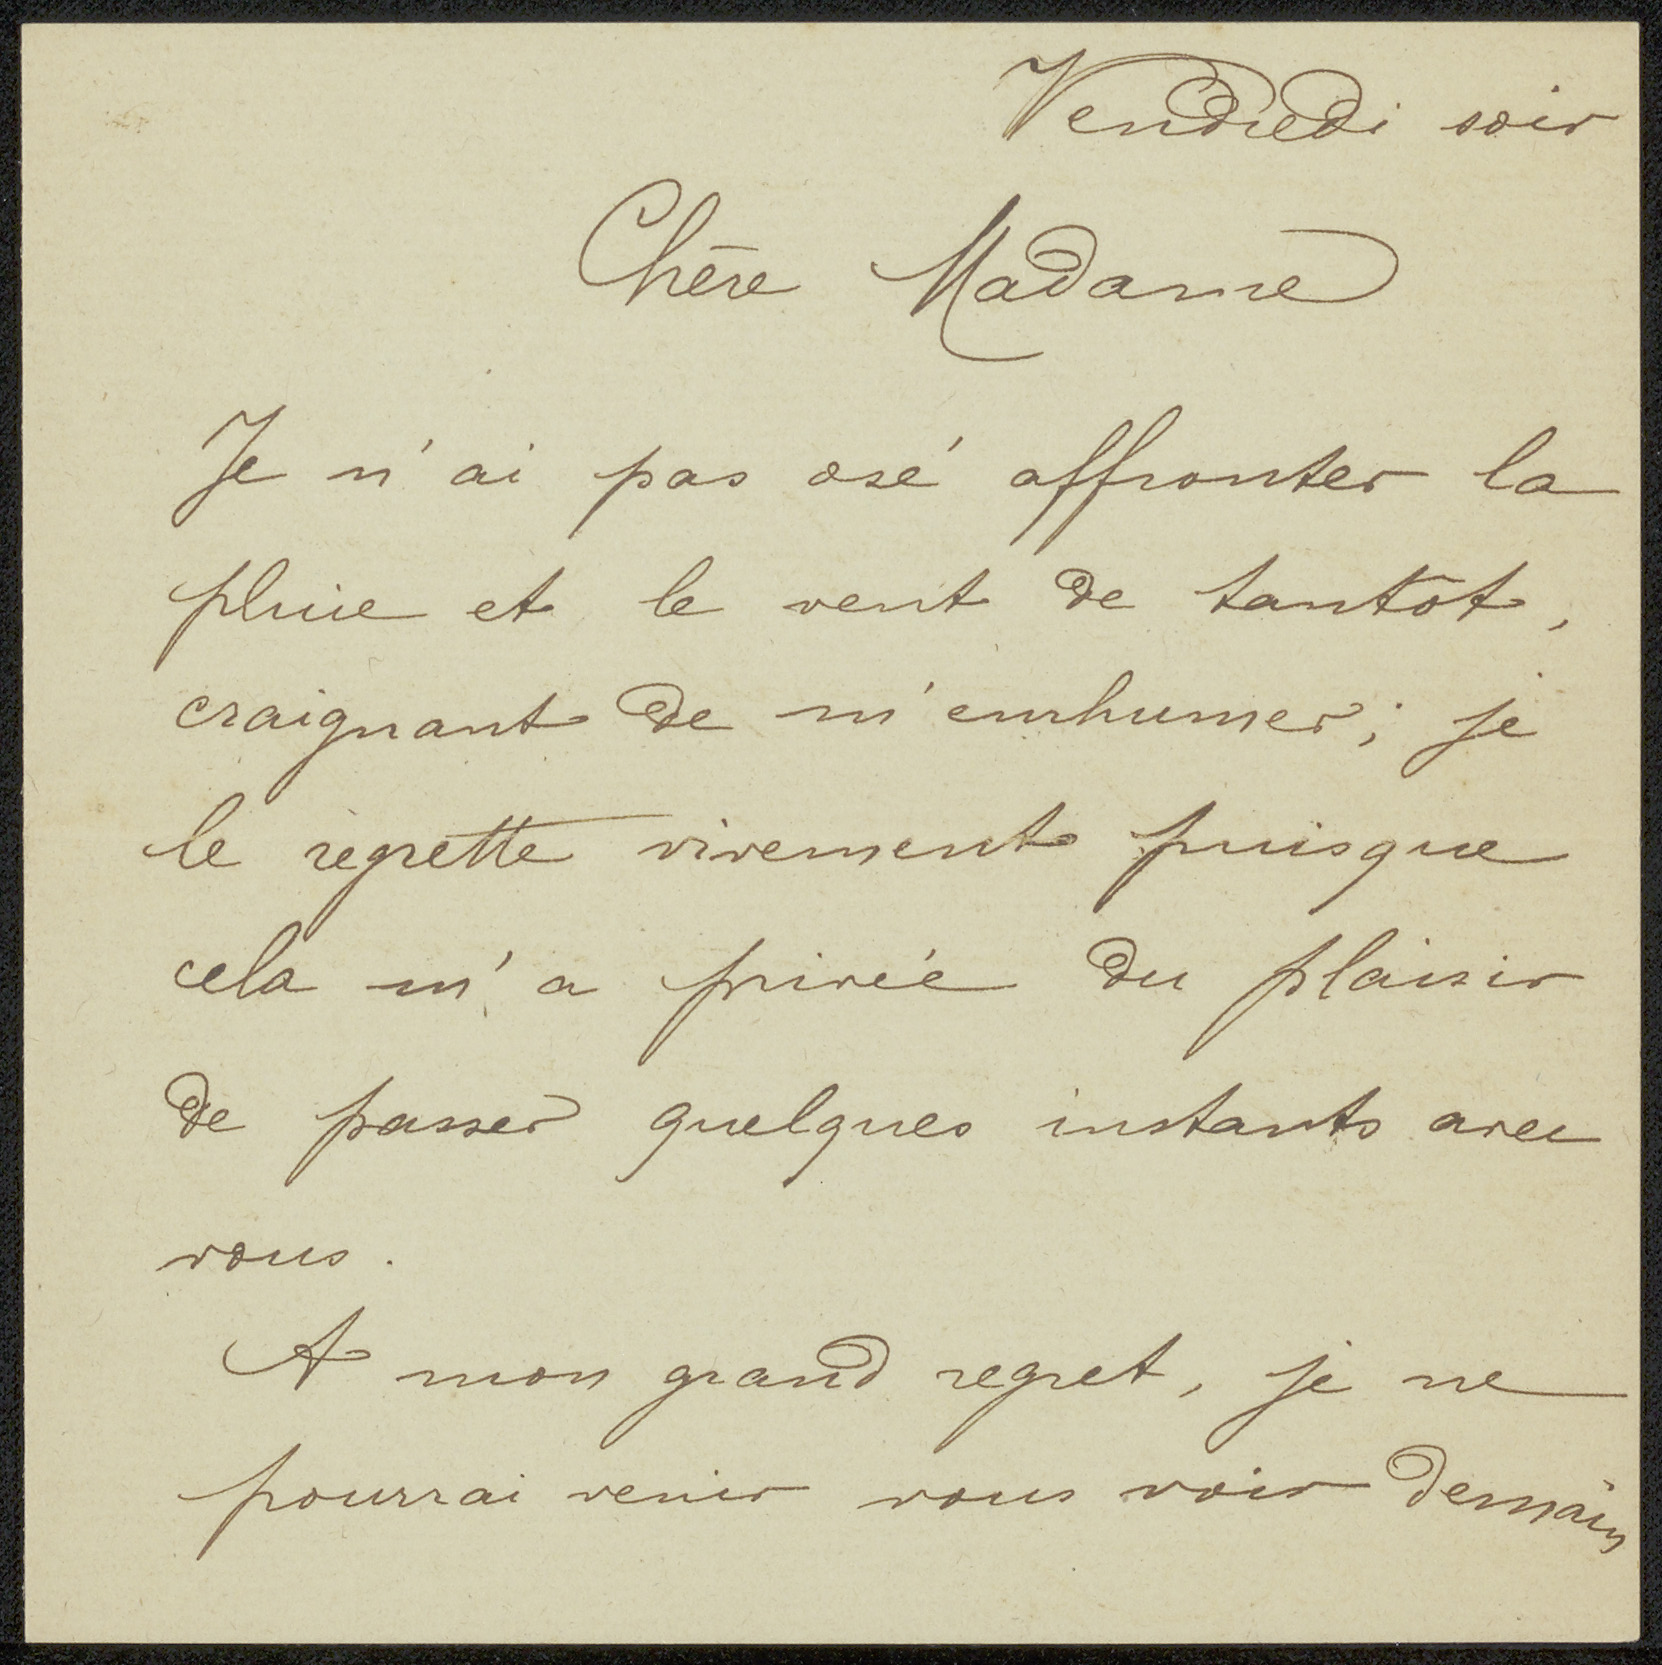 Vendredi soir
Chère Madame
Je n'ai pas osé affronter la
pluie et le vent de tantôt,
craignant de m'enrhumer; je
le regrette vivement puisque
cela m'a privée du plaisir
de passer quelques instants avec
vous.
A mon grand regret, je ne
pourrai venir vous voir demain